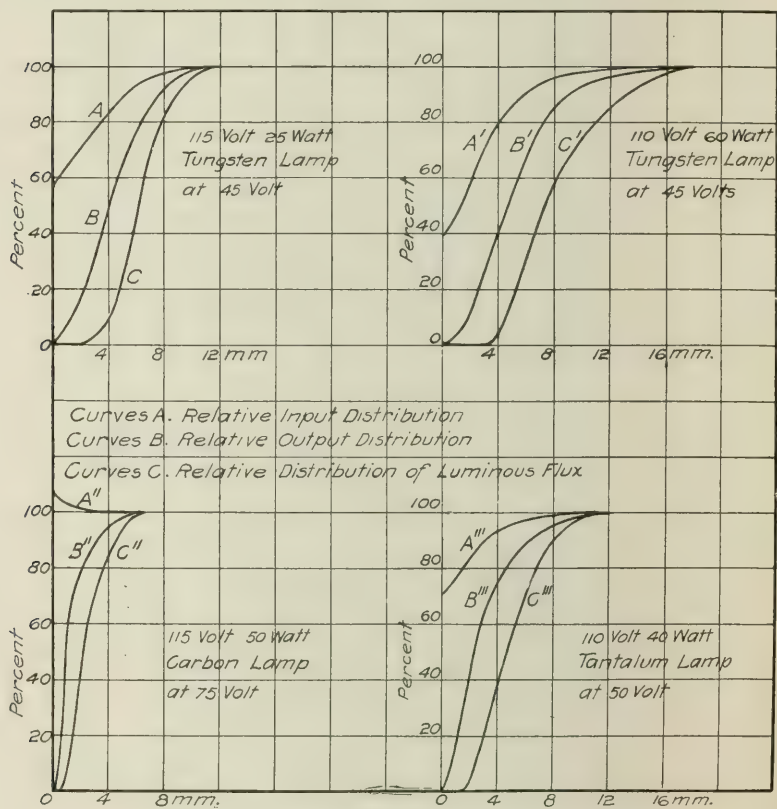 100
80
60
40
.20
0
Percent
A
B
C
115 Volt 25 Watt
Tungsten Lamp
at 45 Volt
4
8
12 mm
100
80
60
40
20
0
Percent
A'
B'
C'
110 Volt 60 Watt
Tungsten Lamp
at 45 Volts
4
8
12
16 mm.
Curves A. Relative Input Distribution
Curves B. Relative Output Distribution
Curves C. Relative Distribution of Luminous Flux
100
80
60
40
20
0
Percent
A"
B"
C"
115 Volt 50 Watt
Carbon Lamp
at 75 Volt
4
8 mm.
100
80
60
40
20
Percent
A'''
B'''
C'''
110 Volt 40 Watt
Tantalum Lamp
at 50 Volt
0
4
8
12
16 mm.